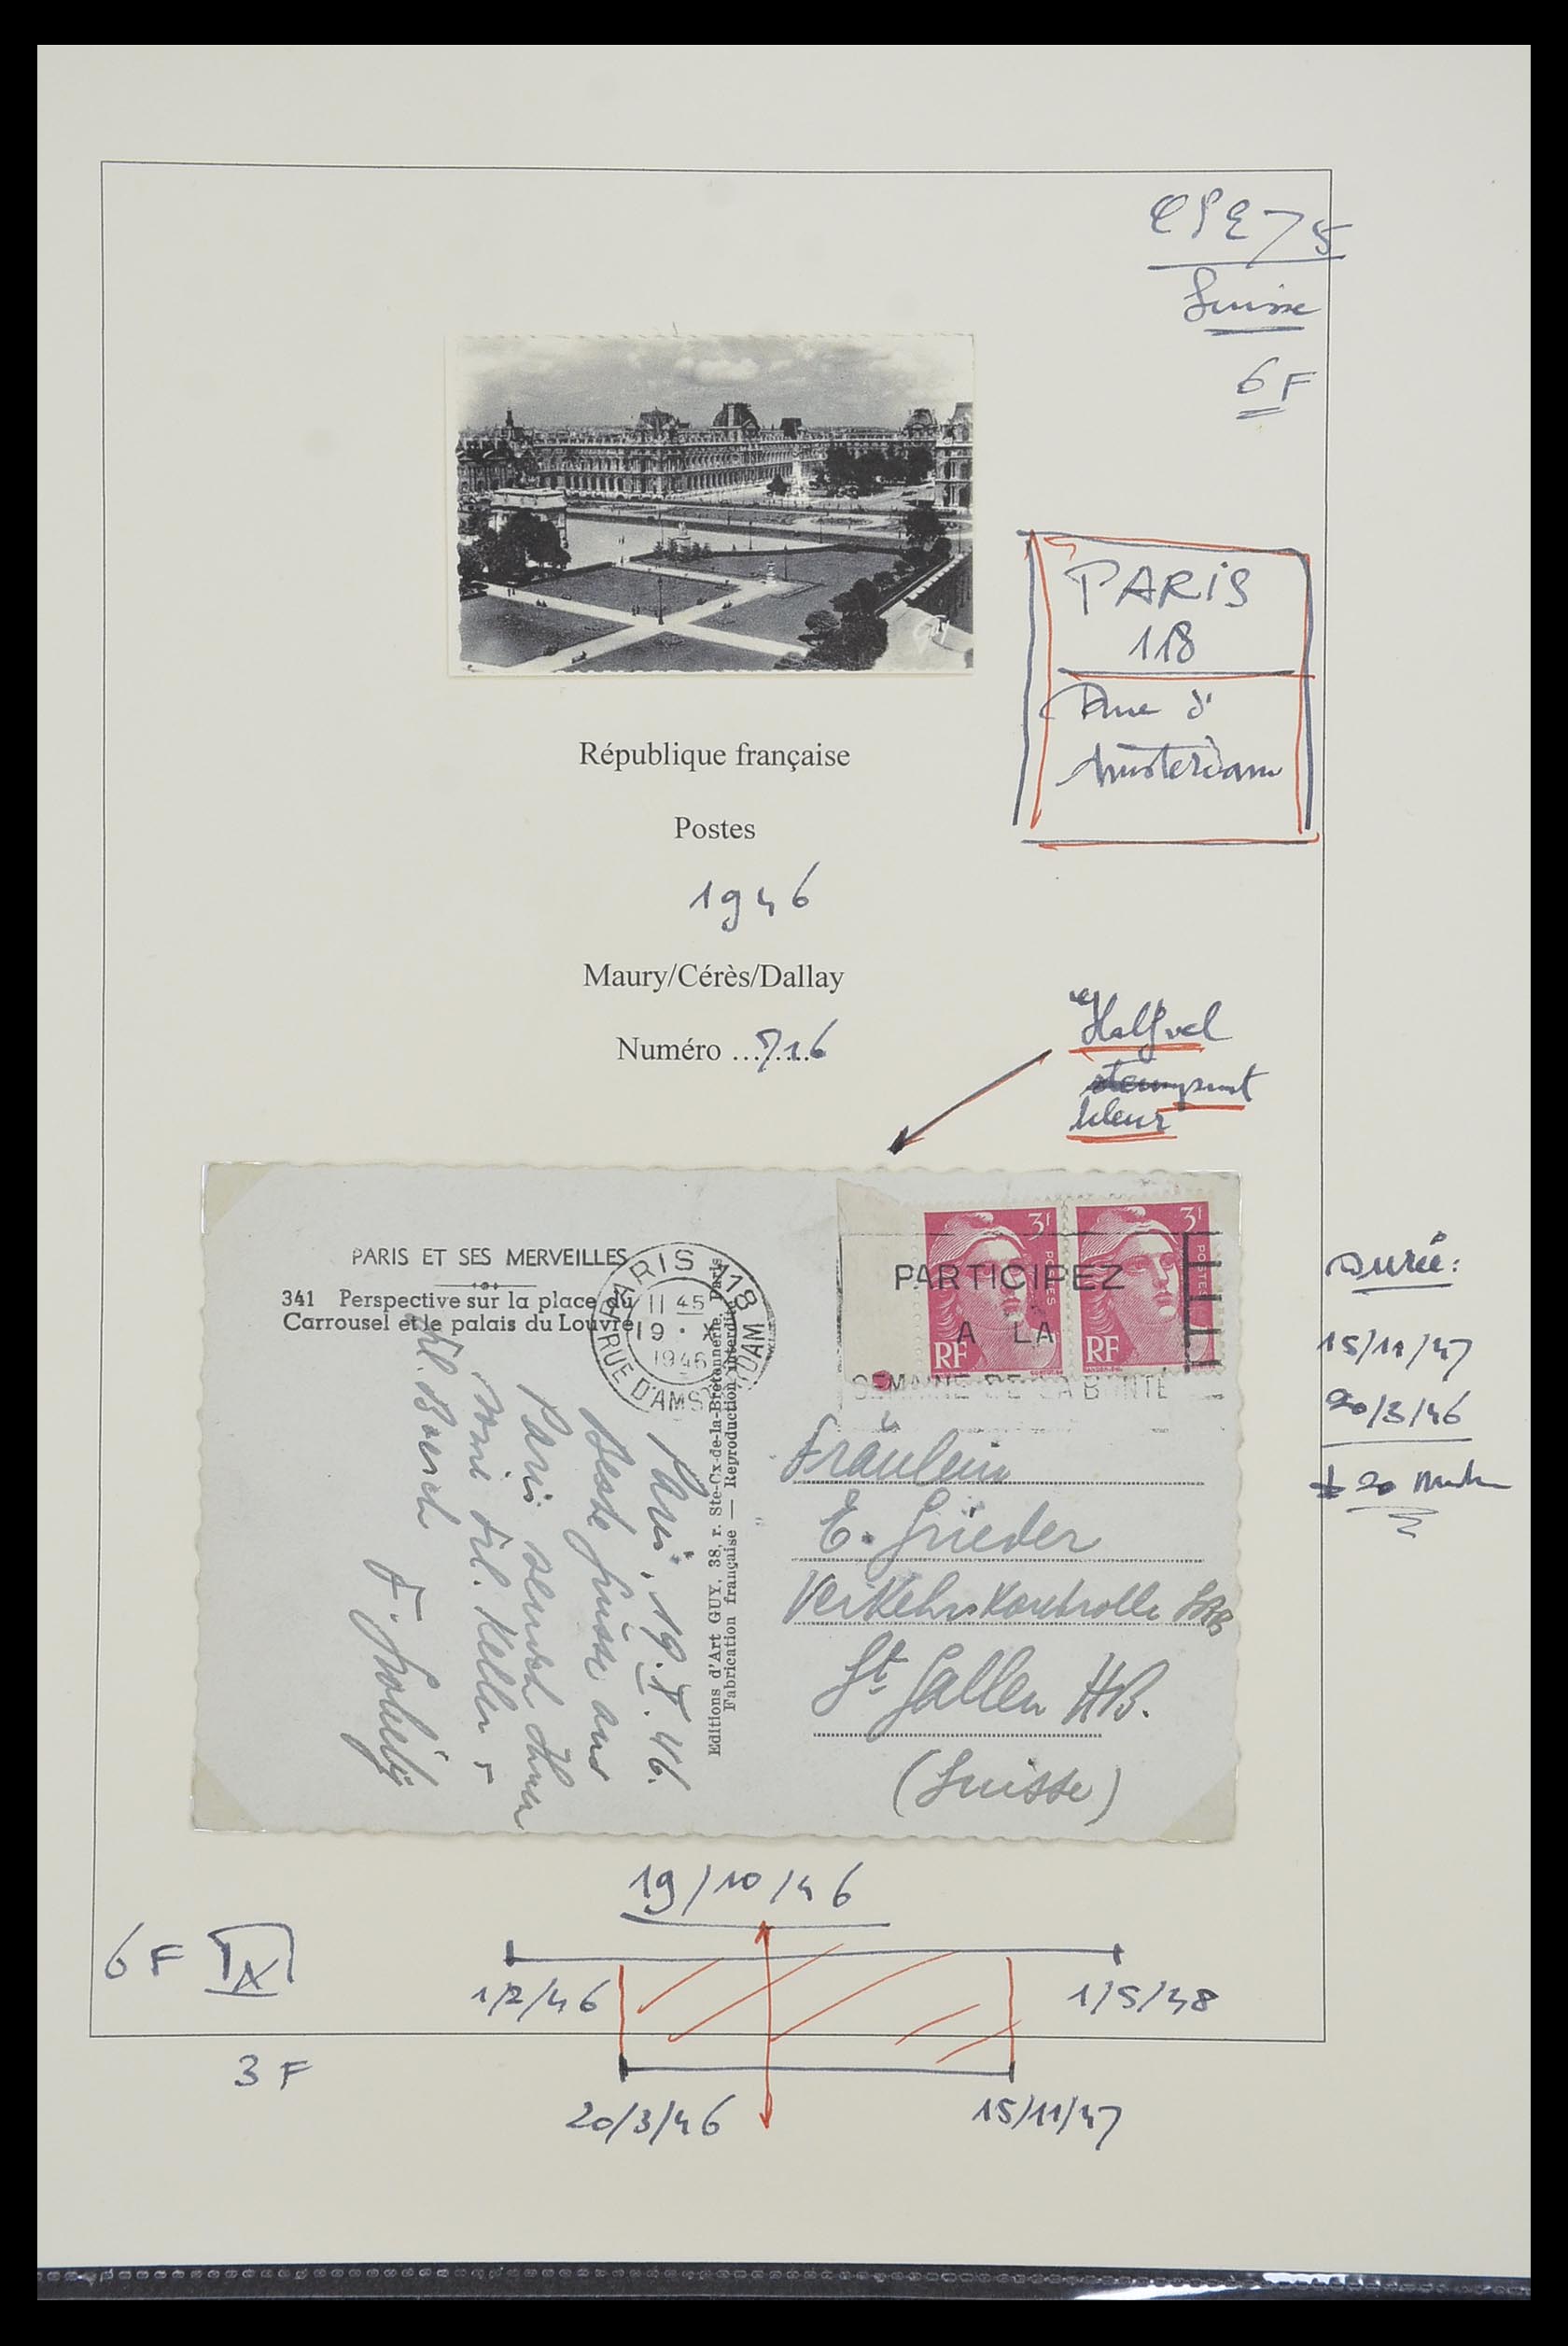 CPE75
Suisse
6 F
PARIS
118
Rue d'
Amsterdam
République française
Postes
1946
Maury/Cérès/Dallay
Numéro ........ 716
Halfvel
PARIS ET SES MERVEILLES
341 Perspective sur la place du
Carrousel et le palais du Louvre
PARIS 118
11 45
19 · X
1946
RUE D'AMSTERDAM
3F
POSTES
RF
3F
POSTES
RF
PARTICIPEZ
A LA
SEMAINE DE LA BONTÉ
Editions d'Art GUY, 38, r. Ste-Cx-de-la-Bretonnerie, Paris
Fabrication française — Reproduction interdite
Paris, 19. X. 46.
Beste Grüsse aus
Paris sendet Ihnen
Frl. Keller
Fräulein
E. Grieder
Verkehrskontrolle SBB
St. Gallen HB.
(Suisse)
Durée:
15/11/47
20/3/46
± 20
19/10/46
6 F
1/2/46
1/5/48
3 F
20/3/46
15/11/47